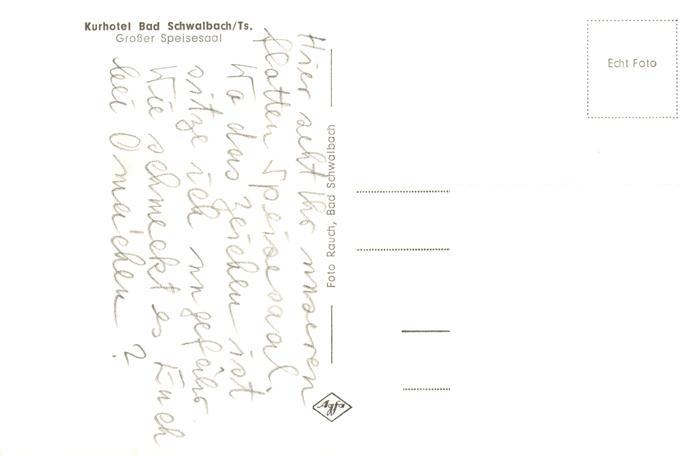 Kurhotel Bad Schwalbach/Ts.
Großer Speisesaal
Echt Foto
Foto Rauch, Bad Schwalbach
Agfa
Hier seht Ihr unseren
flotten Speisesaal,
Wo das zeichen ist,
sitze ich ungefähr
Wie schmeckt es Euch
bei Omachen?